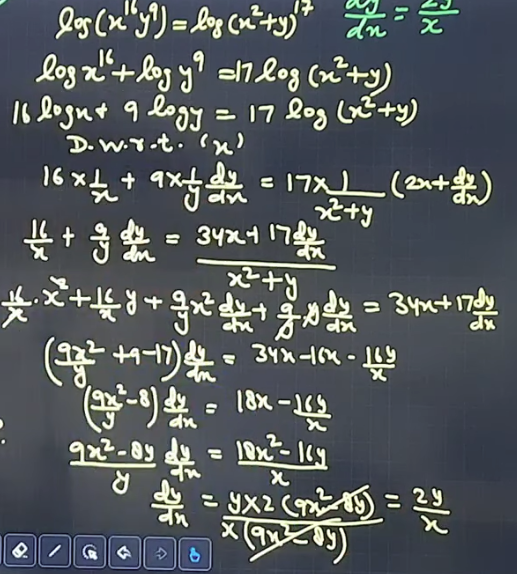 log(x¹⁶y⁹) = log(x²+y)¹⁷ dy/dx = 2y/x
log x¹⁶ + log y⁹ = 17 log (x²+y)
16 log x + 9 log y = 17 log (x²+y)
D.w.r.t. 'x'
16 × 1/x + 9 × 1/y dy/dx = 17 × 1/(x²+y) (2x + dy/dx)
16/x + 9/y dy/dx = (34x + 17 dy/dx)/(x²+y)
16/x · x² + 16/x y + 9/y x² dy/dx + 9/y y dy/dx = 34x + 17 dy/dx
(9x²/y + 9 - 17) dy/dx = 34x - 16x - 16y/x
(9x²/y - 8) dy/dx = 18x - 16y/x
(9x² - 8y)/y dy/dx = (18x² - 16y)/x
dy/dx = y × 2 (9x² - 8y)/x (9x² - 8y) = 2y/x